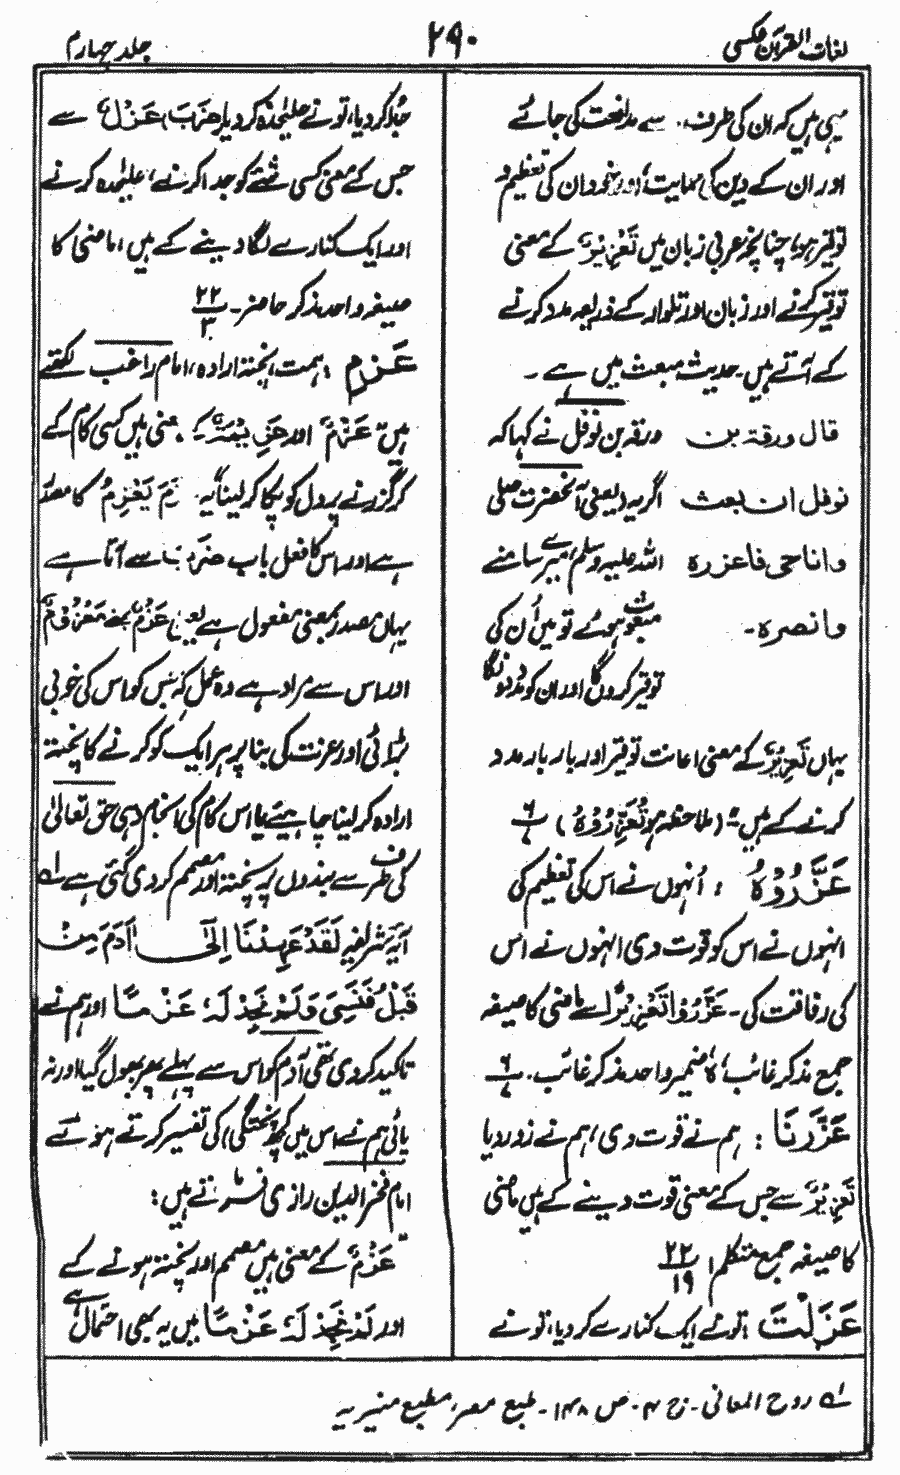 لغات القرآن عکسی
۲۹۰
جلد چہارم
یہی ہیں کہ ان کی طرف سے مدافعت کی جائے
اور ان کے دین کی حمایت، اور خود ان کی تعظیم و
توقیر ہو، چنانچہ عربی زبان میں تَعْزِیْرٌ کے معنی
توقیر کرنے اور زبان اور تلوار کے ذریعہ مدد کرنے
کے آتے ہیں۔ حدیث مبعث میں ہے ۔
قال ورقۃ بن ورقہ بن نوفل نے کہا کہ
نوفل ان بعث اگر یہ (یعنی آنحضرت صلی
وانا حی فاعزرہ اللہ علیہ وسلم) میرے سامنے
وانصرہ۔ مبعوث ہوئے تو میں اُن کی
توقیر کروں گا اور ان کو مدد دونگا
یہاں تَعْزِیْرٌ کے معنی اعانت توقیر اور بار بار مدد
کرنے کے ہیں (ملاحظہ ہو تُعَزِّرُوْہُ) ۶
عَزَّرُوْہُ : اُنہوں نے اس کی تعظیم کی
انہوں نے اس کو قوت دی انہوں نے اس
کی رفاقت کی۔ عَزَّرُوْا تَعْزِیْرٌ سے ماضی کا صیغہ
جمع مذکر غائب، ہٗ ضمیر واحد مذکر غائب۔
عَزَّزْنَا : ہم نے قوت دی، ہم نے زور دیا
تَعْزِیْزٌ سے جس کے معنی قوت دینے کے ہیں ماضی
کا صیغہ جمع متکلم ۲۲ ۱۹
عَزَلْتَ : تونے ایک کنارے کر دیا، تونے
جُدا کر دیا، تونے علیٰحدہ کر دیا (ضَرَبَ) عَزْلٌ سے
جس کے معنی کسی شئے کو جدا کرنے، علیٰحدہ کرنے
اور ایک کنارے لگا دینے کے ہیں، ماضی کا
صیغہ واحد مذکر حاضر۔ ۲۲ ۳
عَزْمِ : ہمت، پختہ ارادہ، امام راغب لکھتے
ہیں عَزْمٌ اور عَزِیْمَۃٌ کے معنی ہیں کسی کام کے
کر گزرنے پر دل کو پکا کر لینا یہ عَزَمَ یَعْزِمُ کا مصدر
ہے اور اس کا فعل باب ضَرَبَ سے آتا ہے
یہاں مصدر بمعنی مفعول ہے یعنی عَزْمٌ بمعنے مَعْزُوْمٌ
اور اس سے مراد ہے وہ عمل کہ جس کو اس کی خوبی
بڑائی اور عزت کی بنا پر ہر ایک کو کرنے کا پختہ
ارادہ کر لینا چاہیئے یا اس کام کی انجام دہی حق تعالیٰ
کی طرف سے بندوں پر پختہ اور مصمم کر دی گئی ہے ؎۱
آیہ شریفہ لَقَدْ عَہِدْنَا اِلٰی اٰدَمَ مِنْ
قَبْلُ فَنَسِیَ وَلَمْ نَجِدْ لَہٗ عَزْمًا اور ہم نے
تاکید کر دی تھی آدم کو اس سے پہلے پھر بھول گیا اور نہ
پائی ہم نے اس میں کچھ پختگی) کی تفسیر کرتے ہوئے
امام فخر الدین رازی فرماتے ہیں:
" عَزْمٌ کے معنی ہیں مصمم اور پختہ ہونے کے
اور لَمْ نَجِدْ لَہٗ عَزْمًا میں یہ بھی احتمال ہے
؎۱ روح المعانی۔ ج ۴۔ ص ۱۴۸۔ طبع مصر، مطبع منیریہ